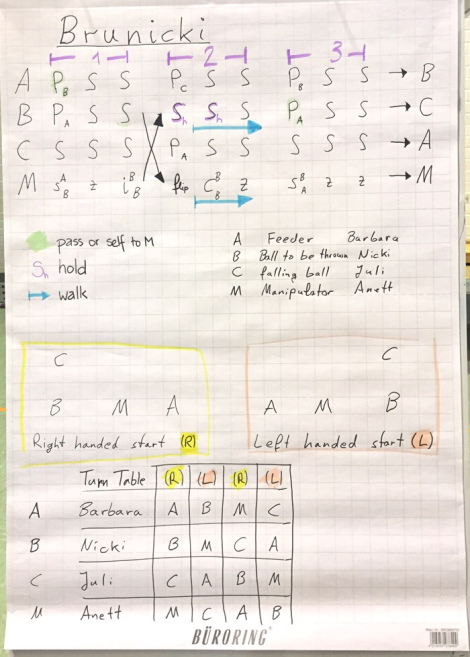 Brunicki
1 2 3
A P_B S S P_C S S P_B S S → B
B P_A S S S_h S_h S P_A S S → C
C S S S P_A S S S S S → A
M S^A_B z i^B_B flip C^B_B z S^B_A z z → M
pass or self to M
S_h hold
walk
A Feeder Barbara
B Ball to be thrown Nicki
C falling ball Juli
M Manipulator Anett
C
B M A
Right handed start (R)
C
A M B
Left handed start (L)
Turn Table (R) (L) (R) (L)
A Barbara A B M C
B Nicki B M C A
C Juli C A B M
M Anett M C A B
BÜRORING